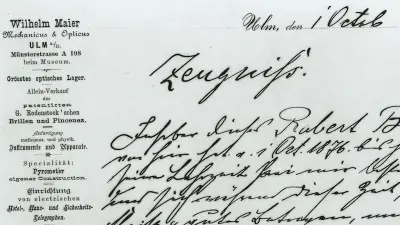 Wilhelm Maier
Mechanicus & Opticus
ULM a/D.
Münsterstrasse A 198
beim Museum.
Grösstes optisches Lager.
Allein-Verkauf
der
patentirten
G. Rodenstock'schen
Brillen und Pincenez.
Anfertigung
mathemat. und physik.
Instrumente und Apparate.
Specialität:
Pyrometer
eigener Construction.
Einrichtung
von electrischen
Hotel-, Haus- und Sicherheits-
Telegraphen.
Ulm, den 1 Octob
Zeugniss.
dieses Robert B
1 Oct. 1876 bis
seine Lehrzeit bei mir
und sich während dieser Zeit,
gutes Betragen,